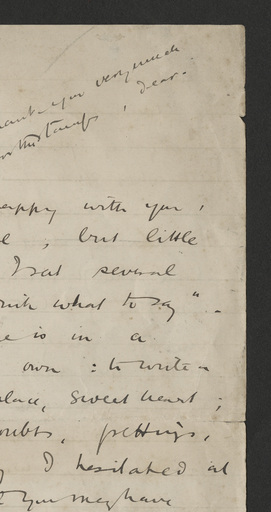 thank you very much
for the stamps, dear.
happy with you,
, but little
I sat several
what to say".
is in a
own : to write a
place, sweetheart ;
doubts, pettings,
I hesitated at
you may have